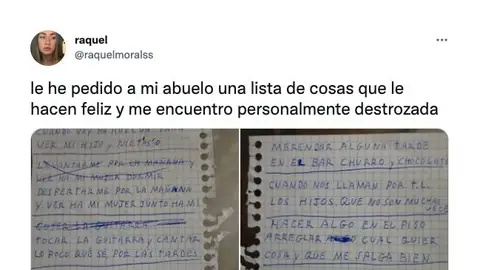 raquel
@raquelmoralss
le he pedido a mi abuelo una lista de cosas que le
hacen feliz y me encuentro personalmente destrozada
VER MI HIJO Y NIETASO
LEVANTARME POR LA MAÑANA Y
VER HA MI MUJER DORMIR
DESPERTARME POR LA MAÑANA
Y VER HA MI MUJER JUNTO HA MI
COJER LA GUITARRA
TOCAR LA GUITARRA Y CANTAR
LO POCO QUE SE POR LAS TARDES
MERENDAR ALGUNA TARDE
EN EL BAR CHURRO Y CHOCOLATE
CUANDO NOS LLAMAN POR T.L.
LOS HIJOS, QUE NO SON MUCHAS
VECES
HACER ALGO EN EL PISO
ARREGLAR CUAL QUIER
COSA Y QUE ME SALGA BIEN